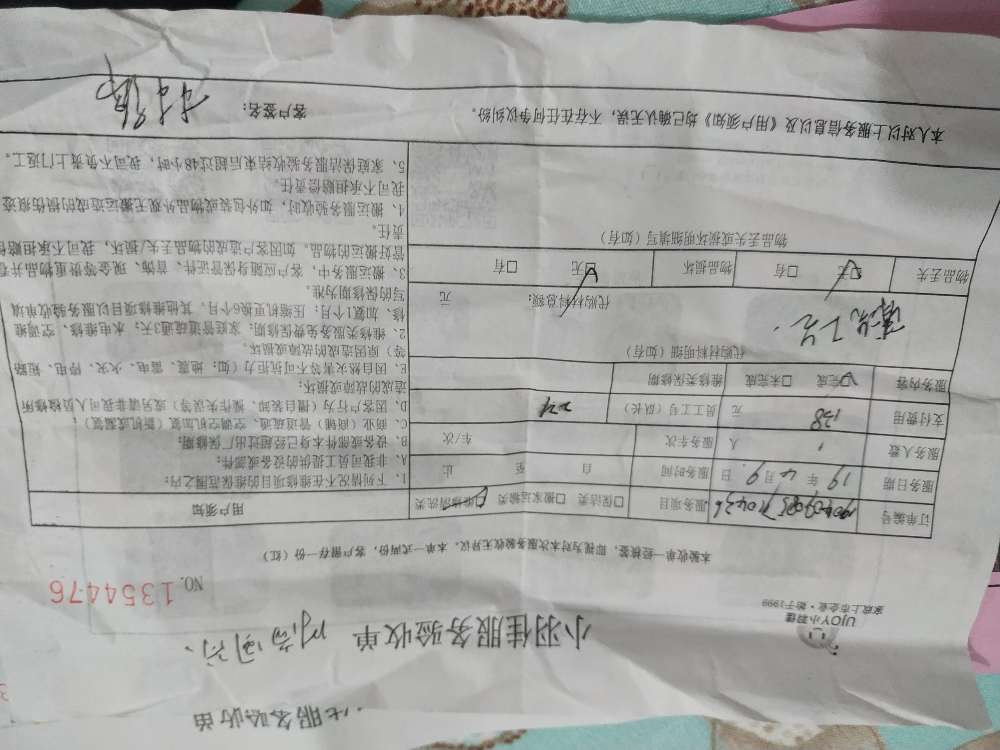 服务验收单
小羽佳服务验收单
UJOY小羽佳
家庭上市企业·始于1999
NO. 1354476
本验收单一经核签,即视为对本次服务验收无异议。本单一式两份,客户留存一份(红)
订单编号 服务项目 □保洁类 □搬家运输类 □维修清洗类
服务日期 19 年 4 月 9 日 服务时间 自 至 止
服务人数 1 人 服务车次 车/次
支付费用 138 元 员工工号(队长)
服务内容 □完成 □未完成 维修类保修期
代购材料明细(如有)
代购材料总额: 元
物品丢失 □无 □有 物品损坏 □无 □有
物品丢失或损坏明细填写(如有)
用户须知
1、下列情况不在维修项目的维保范围之内:
A、非我司员工提供的设备或部件;
B、设备或部件本身已经超过出厂保修期;
C、商业(商铺)管道疏通、空调空机加氟(新机或漏氟);
D、因客户行为(擅自装卸、操作失误等)或另请非我司人员检修所
造成的故障或损坏;
E、因自然灾害等不可抗力(如:地震、雷电、火灾、停电、短路
等)原因造成的故障或损坏。
2、维修类服务免费保修期:家庭管道疏通3天;水电维修、空调维
修、加氟1个月;压缩机更换6个月,其他维修项目以服务验收单填
写的保修期为准。
3、搬运服务中,客户应随身保管证件、首饰、现金等贵重物品并看
管好搬运的物品。如因客户造成的物品丢失/损坏,我司不承担赔偿
责任。
4、搬运服务验收时,如外包装或物品外观无搬运造成的损伤痕迹
我司不承担赔偿责任。
5、家庭保洁服务验收结束后超过48小时,我司不负责上门返工。
本人对以上服务信息以及《用户须知》均已确认无误,不存在任何争议纠纷。 客户签名: